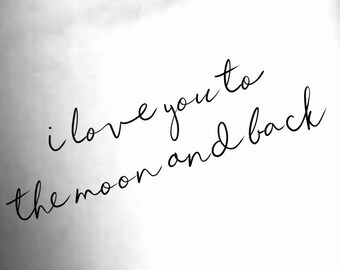 i love you to
the moon and back